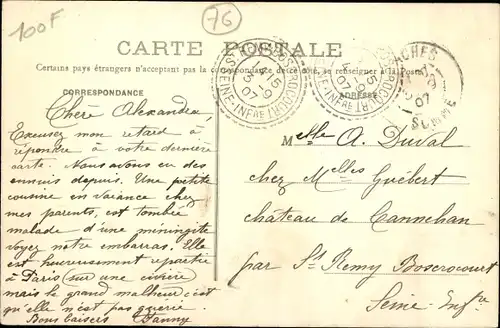 100F
76
CARTE POSTALE
Certains pays étrangers n'acceptent pas la correspondance de ce côté, se renseigner à la Poste
CORRESPONDANCE
ADRESSE
ST RÉMY BOSROCOURT
SEINE-INFRE
GAMACHES
07
SOMME
Chère Alexandra,
Excusez mon retard à
répondre à votre dernière
carte. Nous avons eu des
ennuis depuis. Une petite
cousine en vaiance chez
mes parents, est tombée
malade d'une méningite
voyez notre embarras. Elle
est heureusement repartie
à Paris (sur une civière)
mais le grand malheur c'est
qu'elle n'est pas guérie.
Bons baisers Fanny
Melle A. Duval
chez Melles Guébert
château de Cannehan
par St Remy Boscrocourt
Seine-Infre